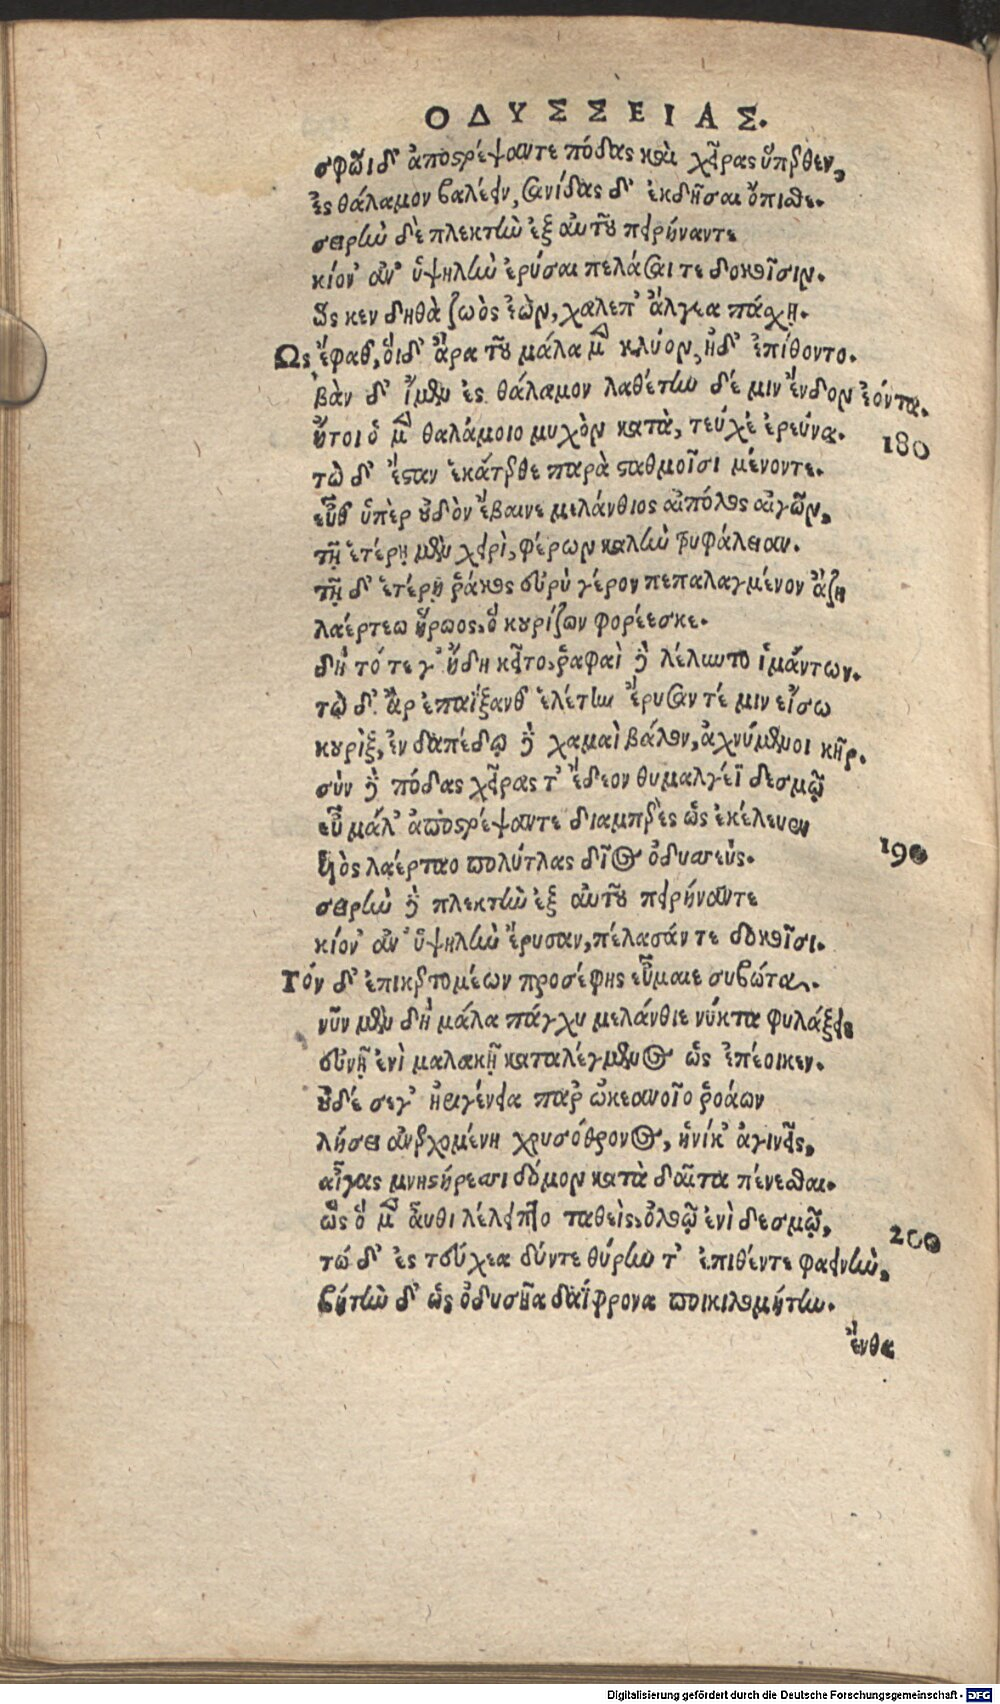 ΟΔΥΣΣΕΙΑΣ.
σφῶϊ δ' ἀποστρέψαντε πόδας καὶ χεῖρας ὕπερθεν,
ἐς θάλαμον βαλέειν, σανίδας δ' ἐκδῆσαι ὄπισθε.
σειρὴν δὲ πλεκτὴν ἐξ αὐτοῦ πειρήναντε
κίον' ἀν' ὑψηλὴν ἐρύσαι πελάσαι τε δοκοῖσιν.
ὥς κεν δηθὰ ζωὸς ἐὼν, χαλεπ' ἄλγεα πάσχῃ.
Ὣς ἔφαθ', οἱ δ' ἄρα τοῦ μάλα μὲν κλύον, ἠδ' ἐπίθοντο.
βὰν δ' ἴμεν ἐς θάλαμον λαθέτην δέ μιν ἔνδον ἐόντα.
ἤτοι ὁ μὲν θαλάμοιο μυχὸν κατὰ, τεύχε' ἐρεύνα.
180
τὼ δ' ἔσταν ἑκάτερθε παρὰ σταθμοῖσι μένοντε.
εὖθ' ὑπὲρ οὐδὸν ἔβαινε μελάνθιος αἰπόλος αἰγῶν,
τῇ ἑτέρῃ μὲν χειρὶ, φέρων καλὴν τρυφάλειαν.
τῇ δ' ἑτέρῃ σάκος εὐρὺ γέρον πεπαλαγμένον ἄζῃ
λαέρτεω ἥρωος, ὃ κουρίζων φορέεσκε.
δὴ τότε γ' ἤδη κεῖτο, ῥαφαὶ δὲ λέλυντο ἱμάντων.
τὼ δ' ἂρ ἐπαΐξανθ' ἑλέτην ἔρυσάν τέ μιν εἴσω
κουρὶξ, ἐν δαπέδῳ δὲ χαμαὶ βάλον, ἀχνύμενοι κῆρ.
σὺν δὲ πόδας χεῖρας τ' ἔδεον θυμαλγέϊ δεσμῷ
εὖ μάλ' ἀποστρέψαντε διαμπερὲς ὡς ἐκέλευεν
190
υἱὸς λαέρταο πολύτλας δῖος ὀδυσσεύς.
σειρὴν δὲ πλεκτὴν ἐξ αὐτοῦ πειρήναντε
κίον' ἀν' ὑψηλὴν ἔρυσαν, πέλασάν τε δοκοῖσι.
Τόν δ' ἐπικερτομέων προσέφης εὔμαιε συβῶτα.
νῦν μὲν δὴ μάλα πάγχυ μελάνθιε νύκτα φυλάξεις
εὐνῇ ἐνὶ μαλακῇ καταλέγμενος ὥς ἐπέοικεν.
οὐδέ σεγ' ἠριγένεια παρ' ὠκεανοῖο ῥοάων
λήσει ἀνερχομένη χρυσόθρονος, ἡνίκ' ἀγινεῖς,
αἶγας μνηστήρεσσι δόμον κατὰ δαῖτα πένεσθαι.
ὣς ὁ μὲν αὖθι λέλειπτο ταθεὶς, ὀλοῷ ἐνὶ δεσμῷ,
200
τώ δ' ἐς τεύχεα δύντε θύρην τ' ἐπιθέντε φαεινὴν,
βήτην δ' ὡς ὀδυσῆα δαΐφρονα ποικιλομήτην.
ἔνθα
Digitalisierung gefördert durch die Deutsche Forschungsgemeinschaft - DFG